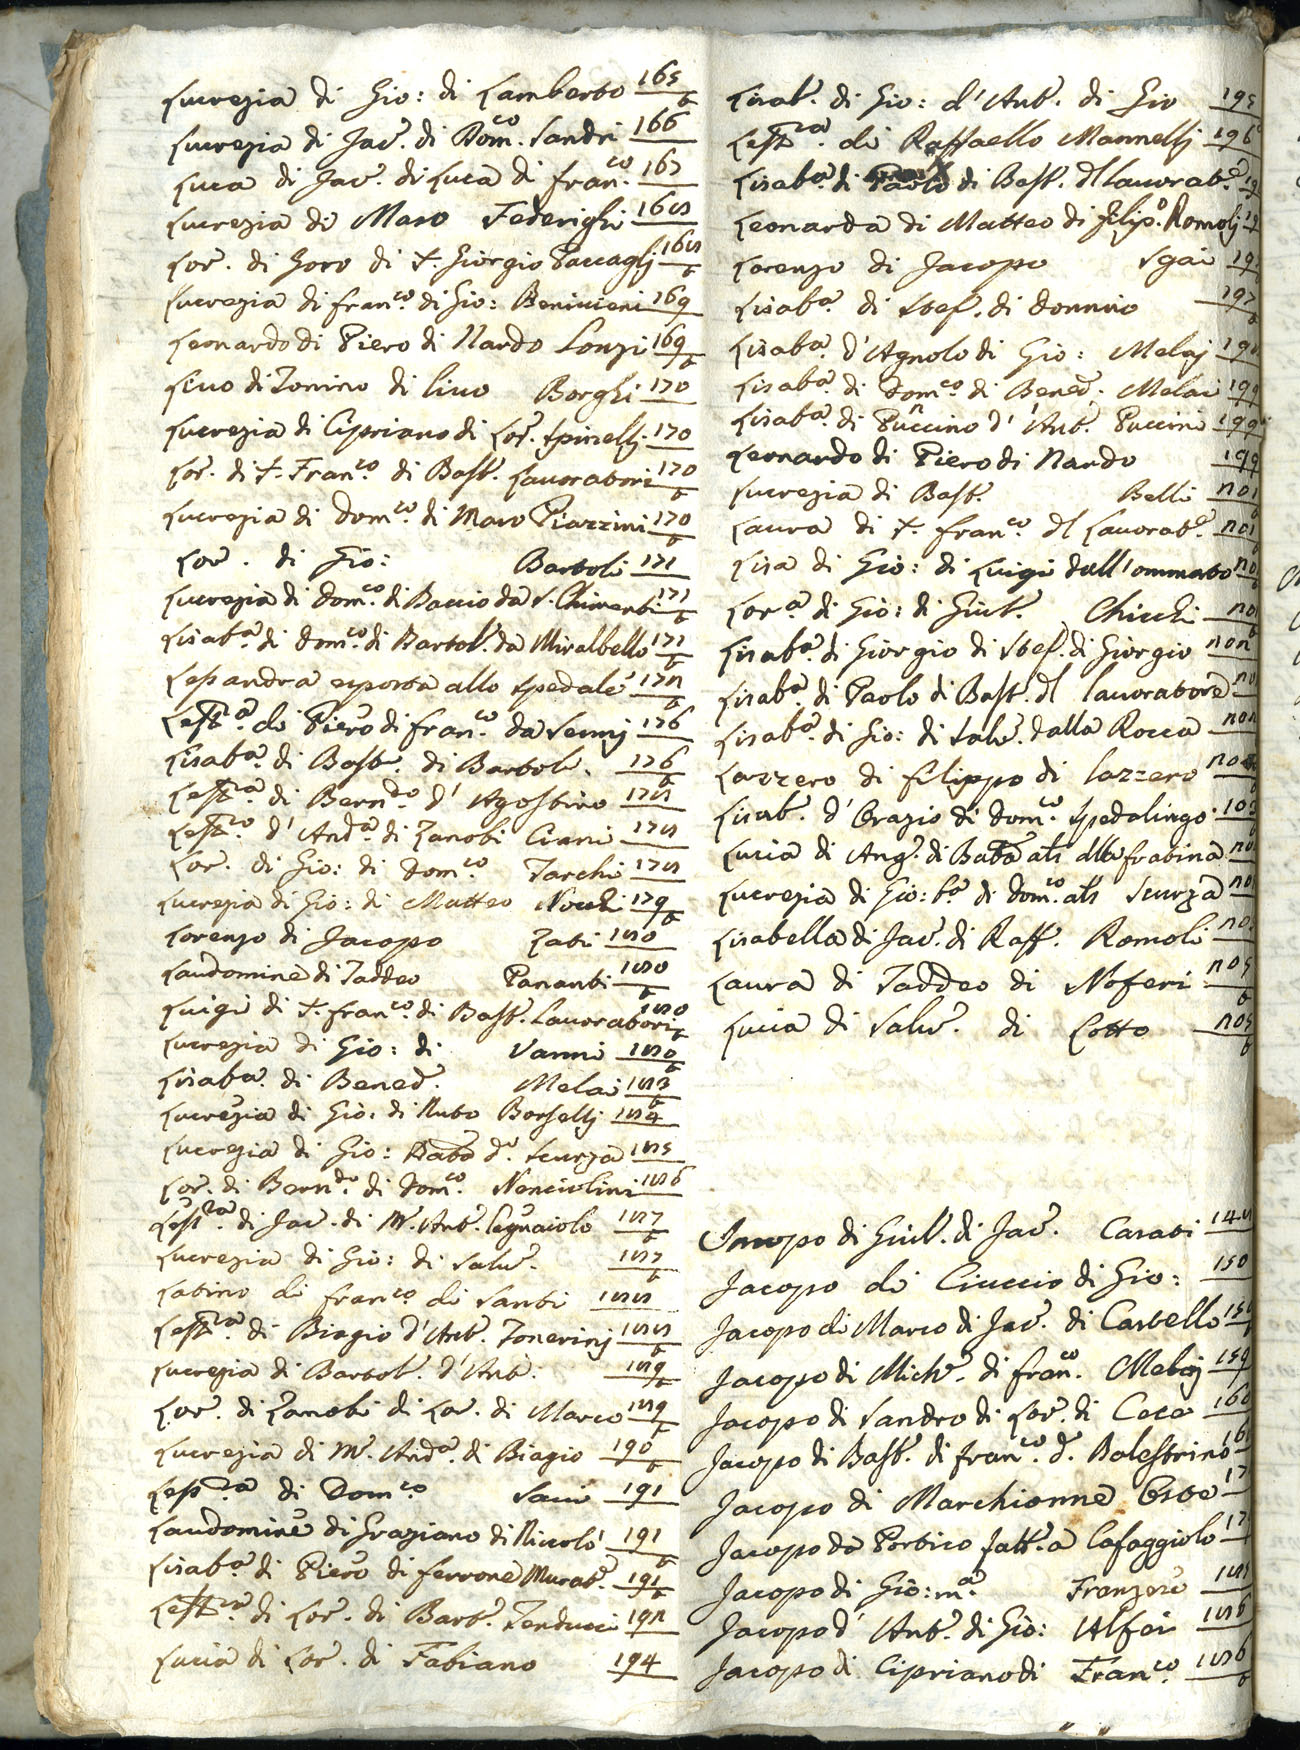 Lucrezia di Gio: di Lamberto 165 b
Lucrezia di Jac. di Dom.co Sandri 166
Luca di Jac. di Luca di fran.co 167
Lucrezia di Maso Federighi 168
Lor. di Goro di S. Giorgio Paccaglj 168 b
Lucrezia di fran.co di Gio: Benivieni 169
Leonardo di Piero di Nardo Lonzi 169 b
Livo di Tonino di livo Borghi 170
Lucrezia di Cipriano di Lor. Spinellj 170
Lor. di S. Fran.co di Bast. Lavoratori 170 b
Lucrezia di Dom.co di Maso Piazzini 170 b
Lor. di Gio: Bartoli 171
Lucrezia di Dom.co di Baccio da S. Chimenti 171 b
Lisab.a di Dom.co di Bartol. da Mirabello 171 b
Lessandra esposta allo Spedale 172
Less.ra di Piero di fran.co da Sennj 176
Lisab.a di Bast. di Bartol. 176 b
Less.ra di Bern.do d' Agostino 178
Less.ro d' And.a di Zanobi Ciani 178
Lor. di Gio: di Dom.co Tarchi 178
Lucrezia di Gio: di Matteo Nocchi 179 b
Lorenzo di Jacopo Zati 180
Laudomine di Taddeo Pananti 180 b
Luigi di S. fran.co di Bast. Lavoratori 180 b
Lucrezia di Gio: di Vanni 180 b
Lisab.a di Bened. Melai 183 b
Lucrezia di Gio: di Nuto Borsellj 184
Lucrezia di Gio: Bab.a d.o Scurza 185
Lor. di Bern.do di Dom.co Nenciolini 186
Less.ra di Jac. di M. Ant. legnaiolo 187 b
Lucrezia di Gio: di Salv. 187 b
Latino di fran.co di Santi 188
Less.ra di Biagio d' Ant. Tonerinj 188 b
Lucrezia di Bartol. d' Ant. 189 b
Lor. di Zanobi di Lor. di Marco 189 b
Lucrezia di M. And.a di Biagio 190 b
Less.ra di Dom.co Savi 191
Laudomine di Graziano di Niccolò 191 b
Lisab.a di Piero di ferrone Murat. 191 b
Less.ra di Lor. di Bart. Tenducci 192
Lucia di Lor. di Fabiano 194
Lisab. di Gio: d' Ant. di Gio 195
Less.ra di Raffaello Mannellj 196
Lisab.a di Paolo di Bast. dl lavorat.e
Leonarda di Matteo di filip.o Romolj
Lorenzo di Jacopo Sgai
Lisab.a di Stef. di Donnino 197 b
Lisab.a d' Agnolo di Gio: Melaj
Lisab.a di Dom.co di Bened. Melai 199
Lisab.a di Puccino d' Ant. Puccini 199
Leonardo di Piero di Nardo 199
Lucrezia di Bast. Belli 201
Laura di S. fran.co dl Lavorat.e 201 b
Lisa di Gio: di Luigi dall'ommato
Lor.a di Gio: di Giul. Chiochi
Lisab.a di Giorgio di Stef. di Giorgio 202
Lisab.a di Paolo di Bast. dl lavoratore
Lisab.a di Gio: di Salv. dalla Rocca 202
Lazzero di filippo di lazzero
Lisab. d' Orazio di Dom.co Spedalingo
Lucia di Ang. di Bab.a als dlla fratina
Lucrezia di Gio: b.a di Dom.co als Scurza
Lisabella di Jac. di Raff. Romoli
Laura di Taddeo di Noferi 205 b
Lucia di Salv. di Cotto 205 b
Jacopo di Giul. di Jac. Carati 148
Jacopo di Ciuccio di Gio: 150
Jacopo di Marco di Jac. di Castello
Jacopo di Mich. di fran.co Melaj 159
Jacopo di Sandro di Lor. di Ceca
Jacopo di Bast. di fran.co d.o Balestrino
Jacopo di Marchionne Oste
Jacopo da Portico fatt. a Cafaggiolo
Jacopo di Gio: m.a Franzese
Jacopo d' Ant. di Gio: Alfei 186
Jacopo di Cipriano di Fran.co 186 b